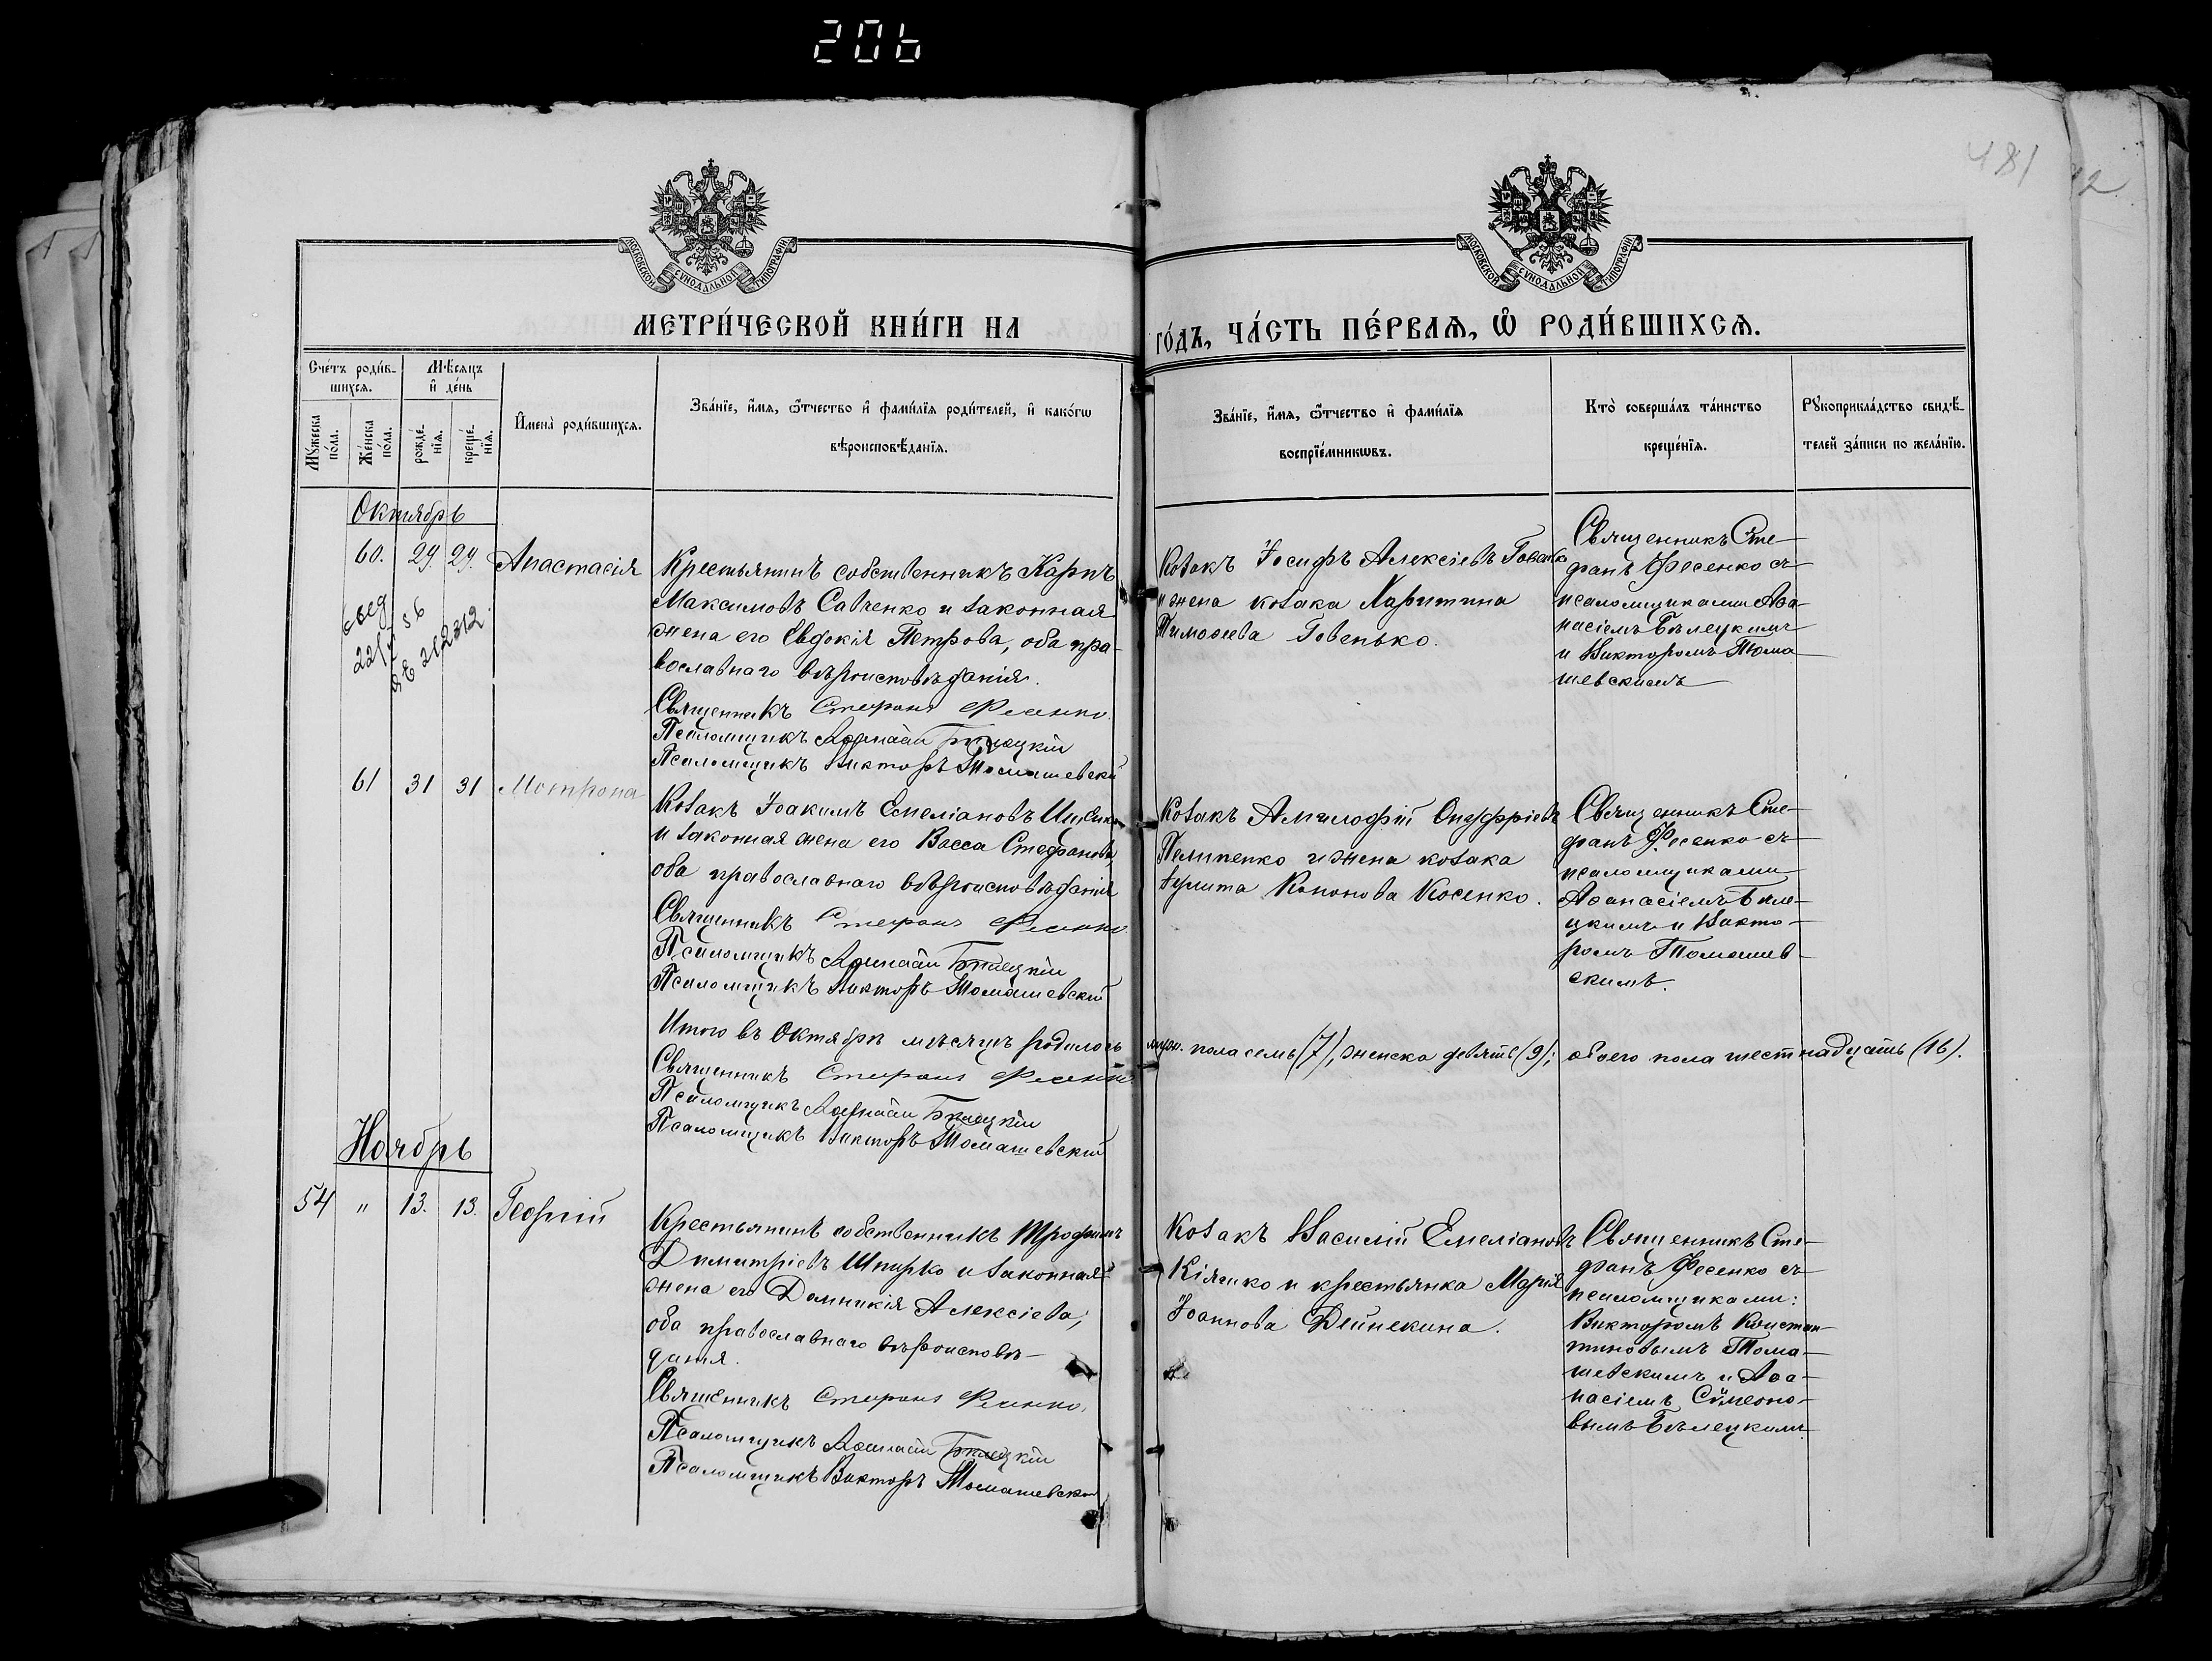 206
481
12
МОСКОВСКОЙ СѴНОДАЛЬНОЙ ТИПОГРАФІИ
МОСКОВСКОЙ СѴНОДАЛЬНОЙ ТИПОГРАФІИ
МЕТРИ́ЧЕСКОЙ КНИ́ГИ НА
ГО́ДЪ, ЧА́СТЬ ПЕ́РВАѦ, Ѡ҆ РОДИ́ВШИХСѦ.
Сче́тъ роди́в-
шихсѧ.
Мꙋ́жеска
по́ла.
Же́нска
по́ла.
Мѣ́сѧцъ
и҆ де́нь
рожде́-
нїѧ.
креще́-
нїѧ.
И҆мена̀ роди́вшихсѧ.
Зва́нїе, и҆́мѧ, ѻ҆́тчество и҆ фами́лїѧ роди́телей, и҆ како́гѡ
вѣроисповѣ́данїѧ.
Зва́нїе, и҆́мѧ, ѻ҆́тчество и҆ фами́лїѧ
воспрїе́мникѡвъ.
Кто̀ соверша́лъ та́инство
креще́нїѧ.
Рꙋкоприкла́дство свидѣ́-
телей за́писи по жела́нїю.
Октябрь
60. 29. 29. Анастасія
Крестьянинъ собственникъ Карпъ
Максимовъ Савченко и законная
жена его Евдокія Петрова, оба пра-
вославнаго вѣроисповѣданія.
Священникъ Стефанъ Фесенко.
Псаломщикъ Аѳанасій Бѣлецкій
Псаломщикъ Викторъ Томашевскій
Козакъ Іосифъ Алексіевъ
и жена козака Харитина
Тимоѳеева Говенько.
Священникъ Сте-
фанъ Фесенко съ
псаломщиками Аѳа-
насіемъ Бѣлецкимъ
и Викторомъ Тома-
шевскимъ
61 31 31 Мотрона
Козакъ Іоакимъ Емеліановъ
и законная жена его Васса Стефанова,
оба православнаго вѣроисповѣданія
Священникъ Стефанъ Фесенко
Псаломщикъ Аѳанасій Бѣлецкій
Псаломщикъ Викторъ Томашевскій
Козакъ Амилофій Онуфріевъ
Пелипенко и жена козака
Кононова Косенко.
Священникъ Сте-
фанъ Фесенко съ
псаломщиками
Аѳанасіемъ Бѣле-
цкимъ и Викто-
ромъ Томашев-
скимъ.
Итого въ Октябрѣ мѣсяцѣ родилось
муж. пола семь (7), женска девять (9); обоего пола шестнадцать (16).
Священникъ Стефанъ Фесенко
Псаломщикъ Аѳанасій Бѣлецкій
Псаломщикъ Викторъ Томашевскій
Ноябрь
54 " 13. 13. Георгій
Крестьянинъ собственникъ Трофимъ
Димитріевъ Шпирко и законная
жена его Домникія Алексіева,
оба православнаго вѣроисповѣ-
данія.
Священникъ Стефанъ Фесенко.
Псаломщикъ Аѳанасій Бѣлецкій
Псаломщикъ Викторъ Томашевскій
Козакъ Василій Емеліановъ
Кіяшко и крестьянка Марія
Іоаннова Дейнекина.
Священникъ Сте-
фанъ Фесенко съ
псаломщиками:
Викторомъ Констан-
тиновымъ Тома-
шевскимъ и Аѳа-
насіемъ Сѵмеоно-
вымъ Бѣлецкимъ.